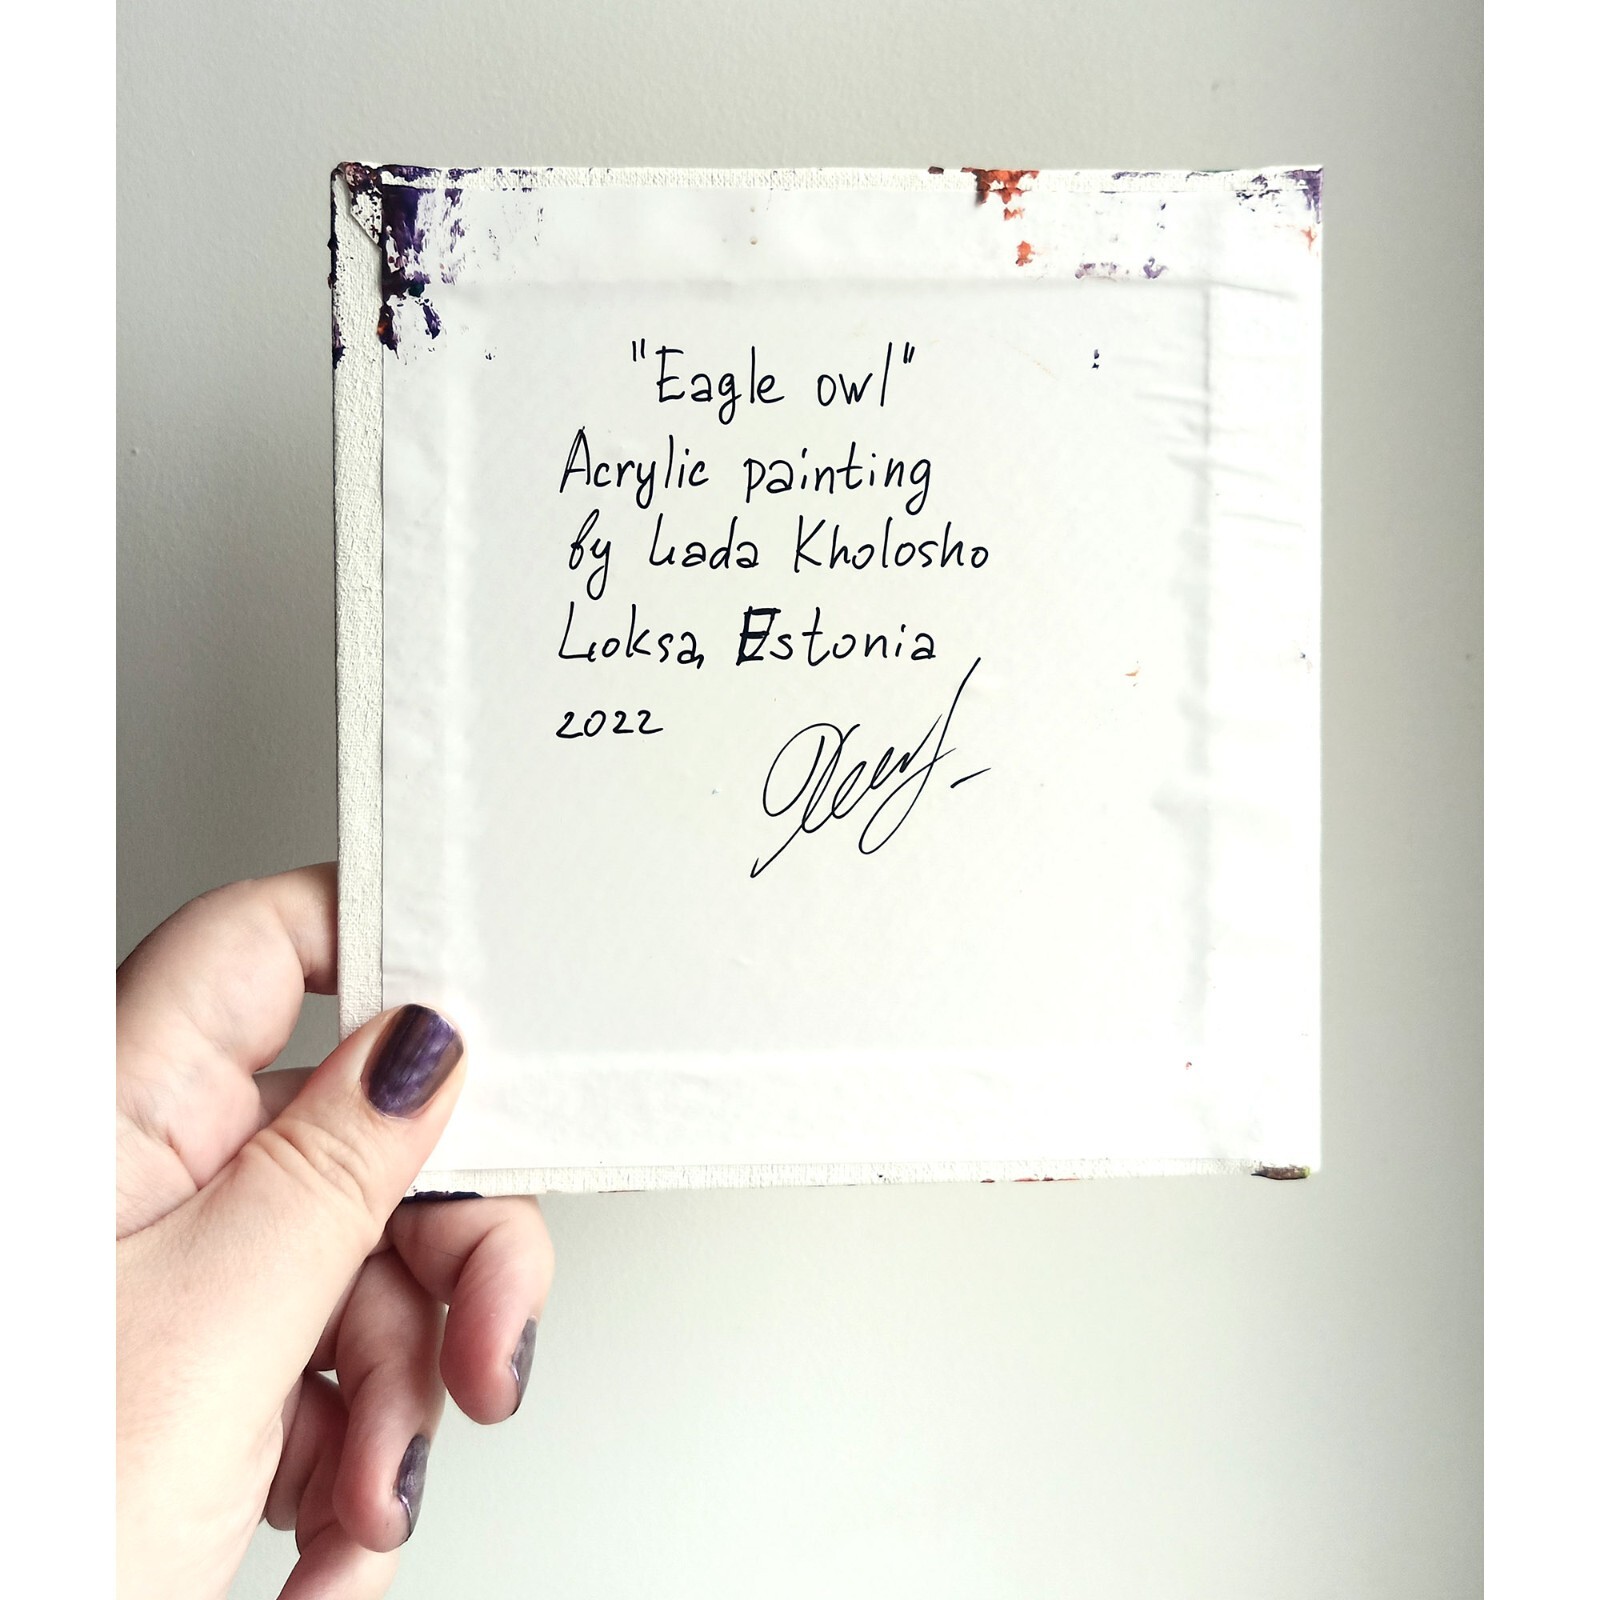 "Eagle owl"
Acrylic painting
by Lada Kholosho
Loksa, Estonia
2022